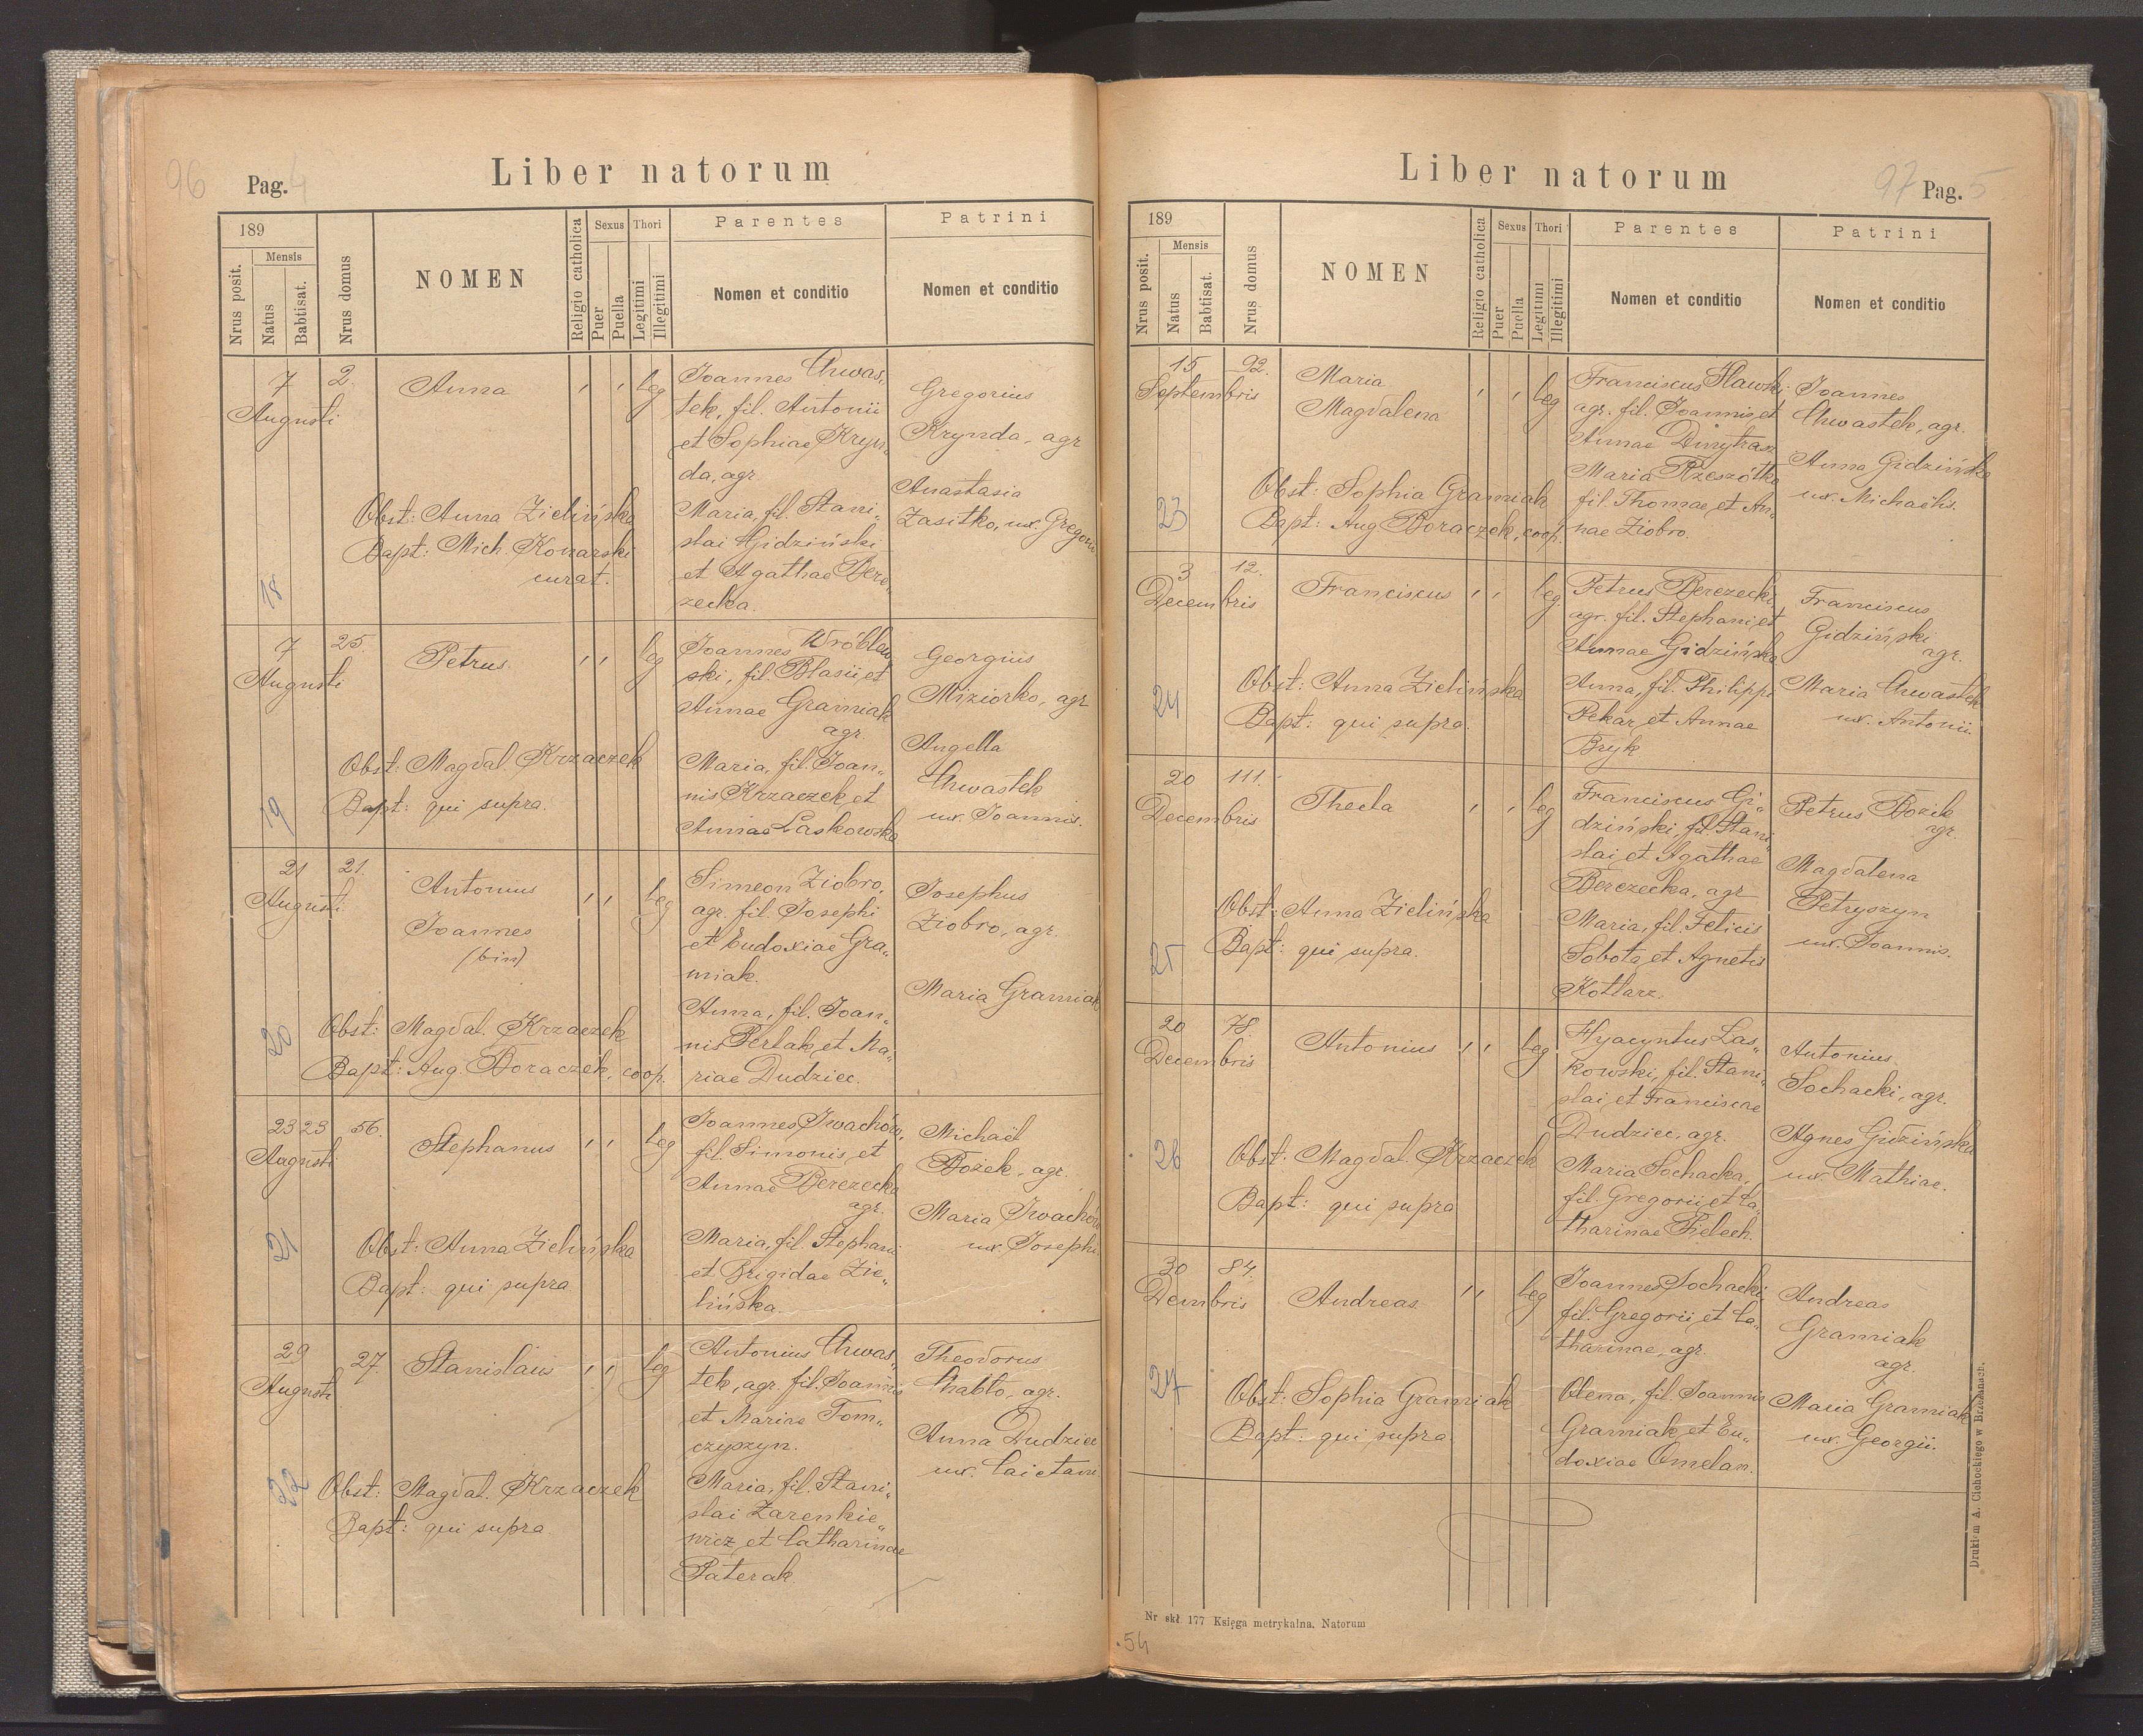 96
Pag. 4
Liber natorum
189
Nrus posit.
Mensis
Natus
Babtisat.
Nrus domus
NOMEN
Religio catholica
Sexus
Puer
Puella
Thori
Legitimi
Illegitimi
Parentes
Nomen et conditio
Patrini
Nomen et conditio
7 2.
Augusti
Anna
, , leg
Joannes Chwas„
tek, fil. Antonii
et Sophiae Kryn„
da, agr.
Maria, fil. Stani„
slai Gidziński
et Agathae Bere„
zecka.
Gregorius
Krynda, agr
Anastasia
Zasitko, ux. Gregorii
Obst: Anna Zielińska
Bapt: Mich. Konarski
curat.
18
7 25.
Augusti
Petrus
, , leg
Joannes Wróblew„
ski, fil. Blasii et
Annae Gramiak
agr.
Maria, fil. Joan„
nis Krzaczek et
Annae Laskowska
Georgius
Miziorko, agr
Angella
Chwastek
ux. Joannis.
Obst: Magdal Krzaczek
Bapt: qui supra.
19
21 21.
Augusti
Antonius
Joannes
(bin)
, , leg
Simeon Ziobro,
agr. fil. Josephi
et Eudoxiae Gra„
miak.
Anna, fil. Joan„
nis Perlak et Ma„
riae Dudziec.
Josephus
Ziobro, agr.
Maria Gramiak
Obst: Magdal. Krzaczek
Bapt: Aug. Boraczek, coop.
20
23 23 56.
Augusti
Stephanus
, , leg
Joannes Iwachów,
fil. Simonis et
Annae Berezecka
agr.
Maria, fil. Stephani
et Brigidae Zie„
lińska.
Michaël
Bożek, agr.
Maria Iwachów
ux. Josephi
Obst: Anna Zielińska
Bapt: qui supra
21
29 27.
Augusti
Stanislaus
, , leg
Antonius Chwas„
tek, agr. fil. Joannis
et Mariae Tom„
czyszyn.
Maria, fil. Stani„
slai Zarenkie„
wicz et Catharinae
Paterak
Theodorus
Chabło, agr.
Anna Dudziec
ux. Caietani
Obst: Magdal. Krzaczek
Bapt: qui supra
22
Liber natorum
97 Pag. 5
189
Nrus posit.
Mensis
Natus
Babtisat.
Nrus domus
NOMEN
Religio catholica
Sexus
Puer
Puella
Thori
Legitimi
Illegitimi
Parentes
Nomen et conditio
Patrini
Nomen et conditio
15 92.
Septembris
Maria
Magdalena
, , leg
Franciscus Sławski
agr. fil. Joannis et
Annae Dmytrasz
Maria Rzeszótka
fil. Thomae et An„
nae Ziobro.
Joannes
Chwastek, agr.
Anna Gidzińska
ux. Michaëlis.
Obst: Sophia Gramiak
Bapt: Aug Boraczek, coop.
23
3 12.
Decembris
Franciscus
, , leg.
Petrus Berezecki
agr. fil. Stephani et
Annae Gidzińska
Anna, fil. Philippi
Pekar et Annae
Bryk.
Franciscus
Gidziński
agr.
Maria Chwastek
ux. Antonii.
Obst: Anna Zielińska
Bapt: qui supra.
24
20 111.
Decembris
Thecla
, , leg
Franciscus Gi„
dziński, fil. Stani„
slai et Agathae
Berezecka, agr
Maria, fil. Felicis
Sobota et Agnetis
Kotlarz.
Petrus Bożek
agr.
Magdalena
Petryszyn
ux. Joannis.
Obst: Anna Zielińska
Bapt: qui supra.
25
20 78
Decembris
Antonius
, , leg
Hyacyntus Las„
kowski, fil. Stani„
slai et Franciscae
Dudziec, agr.
Maria Sochacka,
fil. Gregorii et Ca„
tharinae Fielech.
Antonius
Sochacki, agr.
Agnes Gidzińska
ux. Mathiae.
Obst: Magdal. Krzaczek
Bapt: qui supra
26
30 84.
Dembris
Andreas
, , leg
Joannes Sochacki
fil. Gregorii et Ca„
tharinae, agr.
Olena, fil. Joannis
Gramiak et Eu„
doxiae Omelan.
Andreas
Gramiak
agr.
Maria Gramiak
ux. Georgii.
Obst: Sophia Gramiak
Bapt: qui supra
27
Drukiem A. Cichockiego w Brzeżanach.
Nr skł. 177 Księga metrykalna. Natorum
54